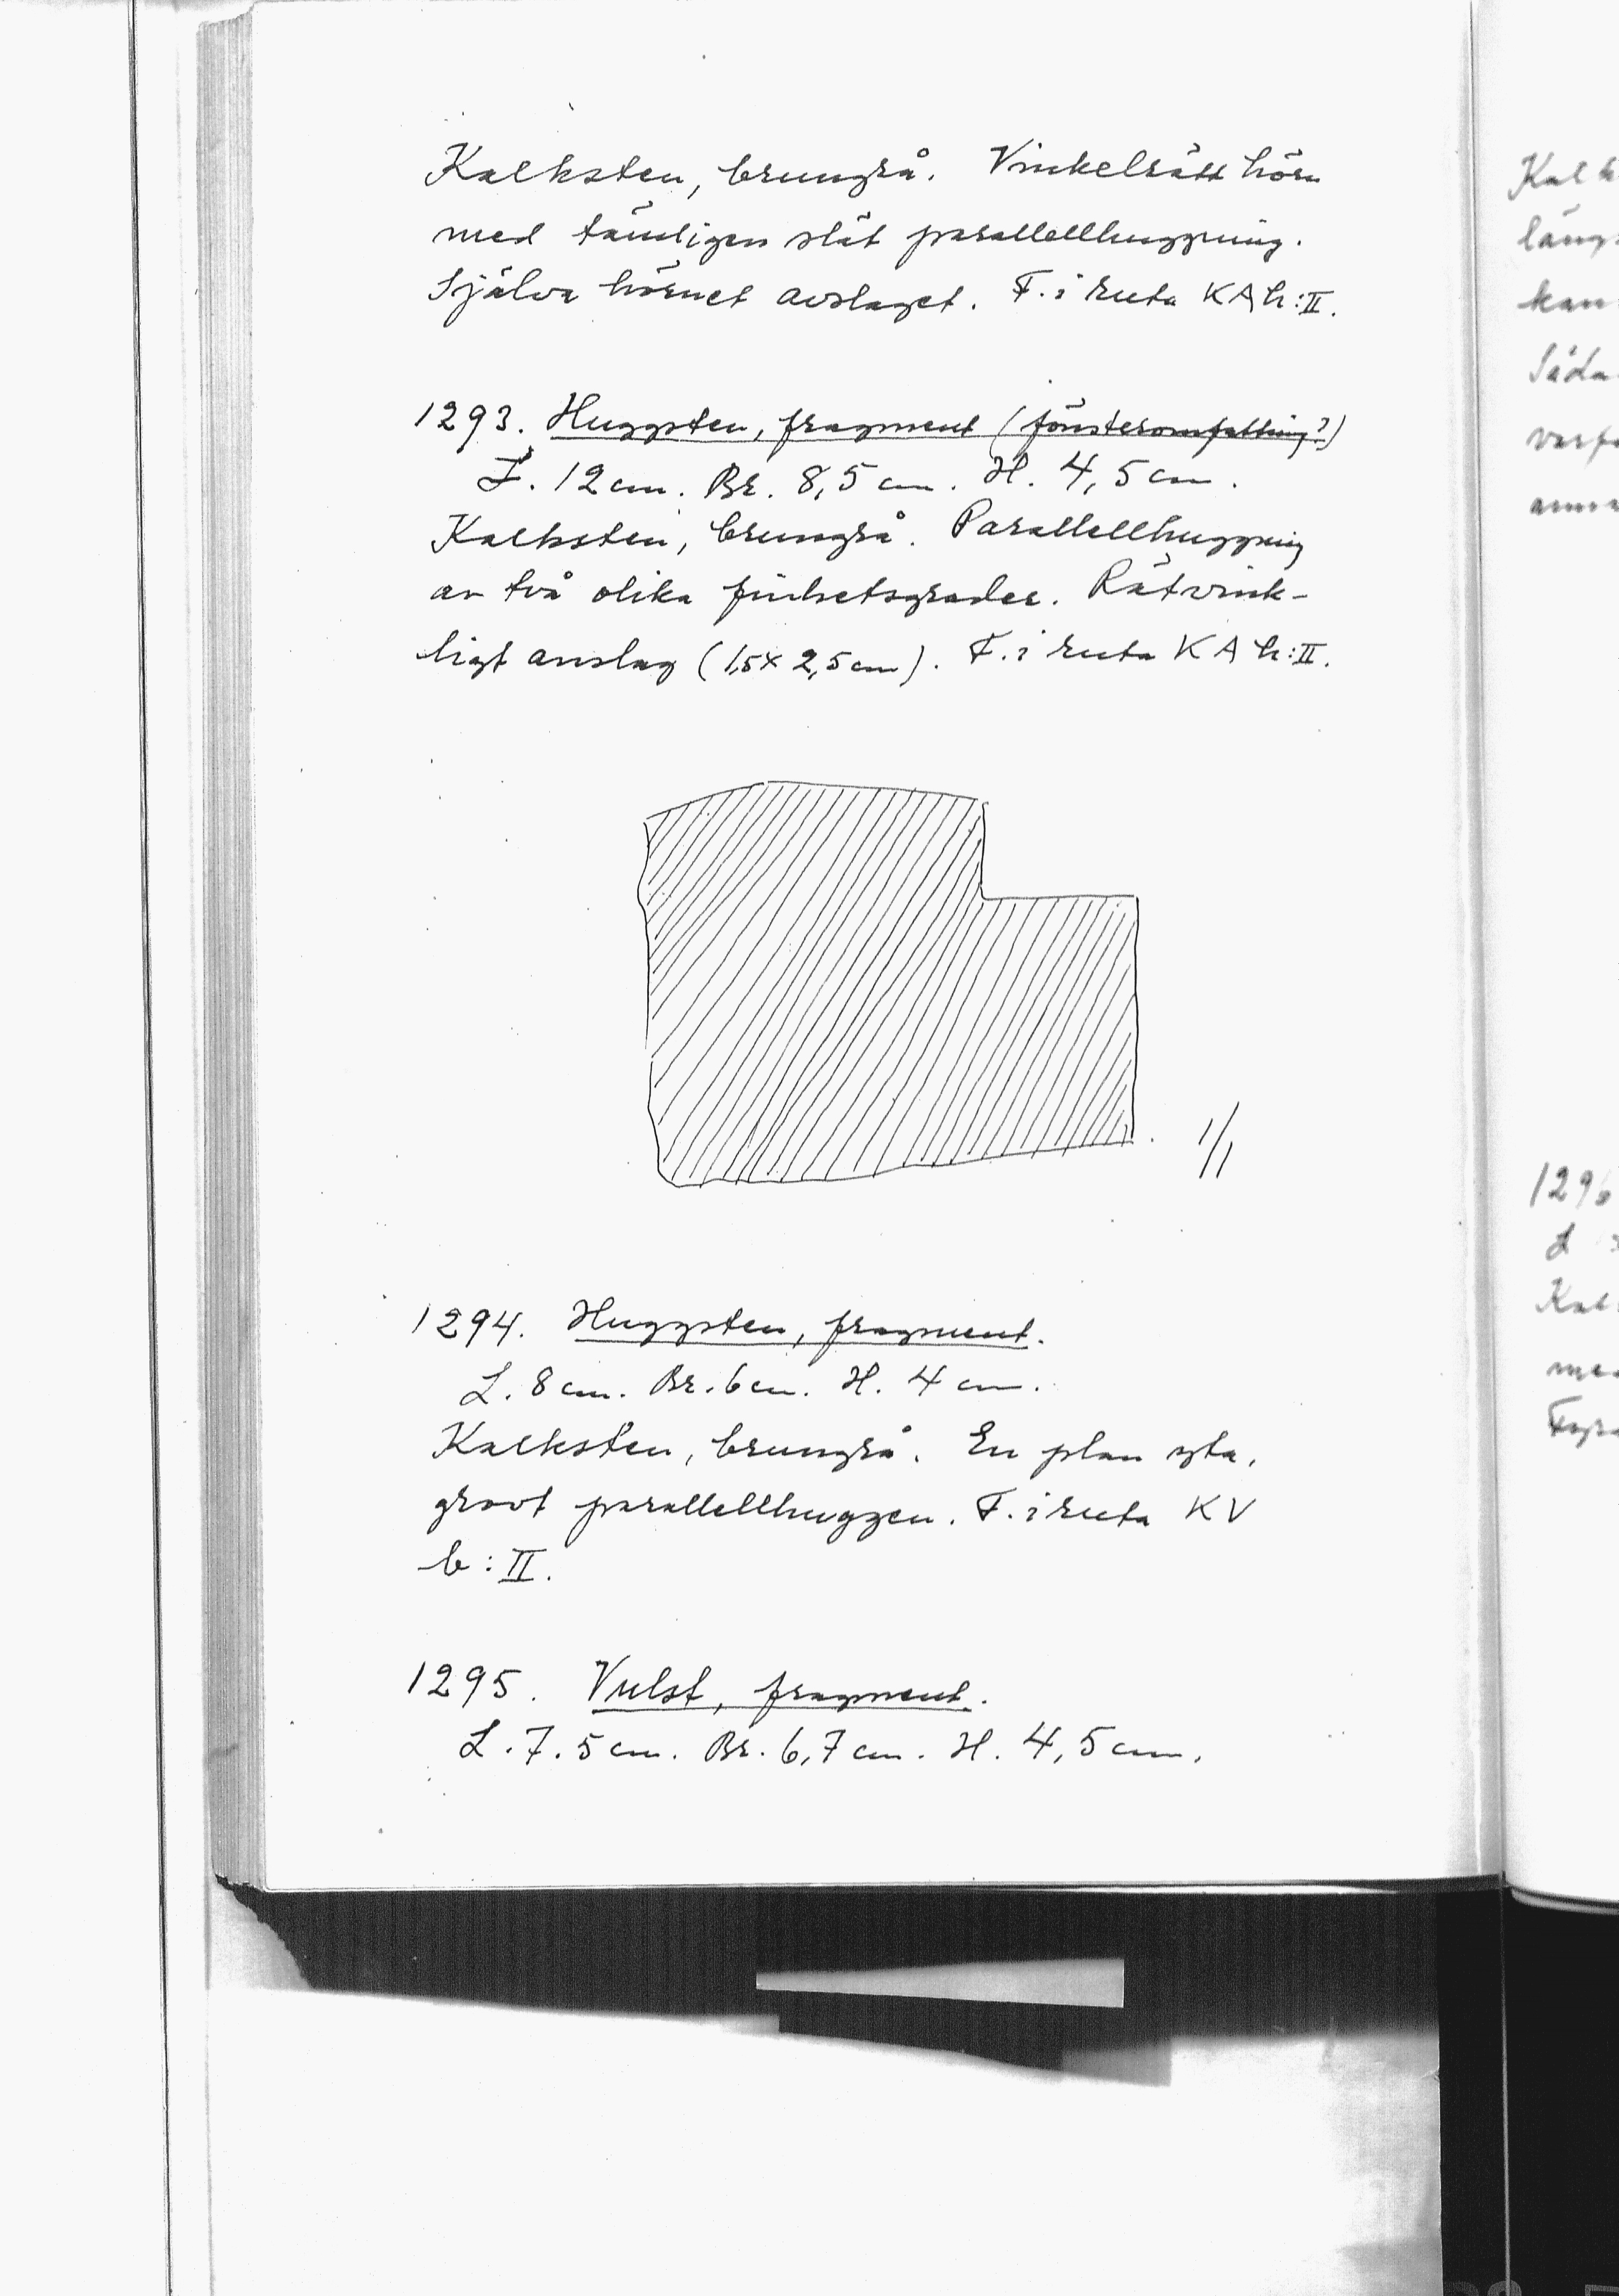 Kalksten, brungrå. Vinkelrätt hörn
med tämligen slät parallellhuggning.
Själva hörnet avslaget. F. i ruta KA h:II.
1293. Huggsten, fragment (fönsteromfattning?)
L. 12 cm. Br. 8,5 cm. H. 4,5 cm.
Kalksten, brungrå. Parallellhuggning
av två olika finhetsgrader. Rätvink-
ligt anslag (1,5 x 2,5 cm). F. i ruta KA h:II.
1/1
1294. Huggsten, fragment.
L. 8 cm. Br. 6 cm. H. 4 cm.
Kalksten, brungrå. En plan yta,
grovt parallellhuggen. F. i ruta KV
b:II.
1295. Vulst, fragment.
L. 7.5 cm. Br. 6,7 cm. H. 4,5 cm.
Kalk
läng
kan
Söda
varf
anna
1296
L
Kal
med
Fyra